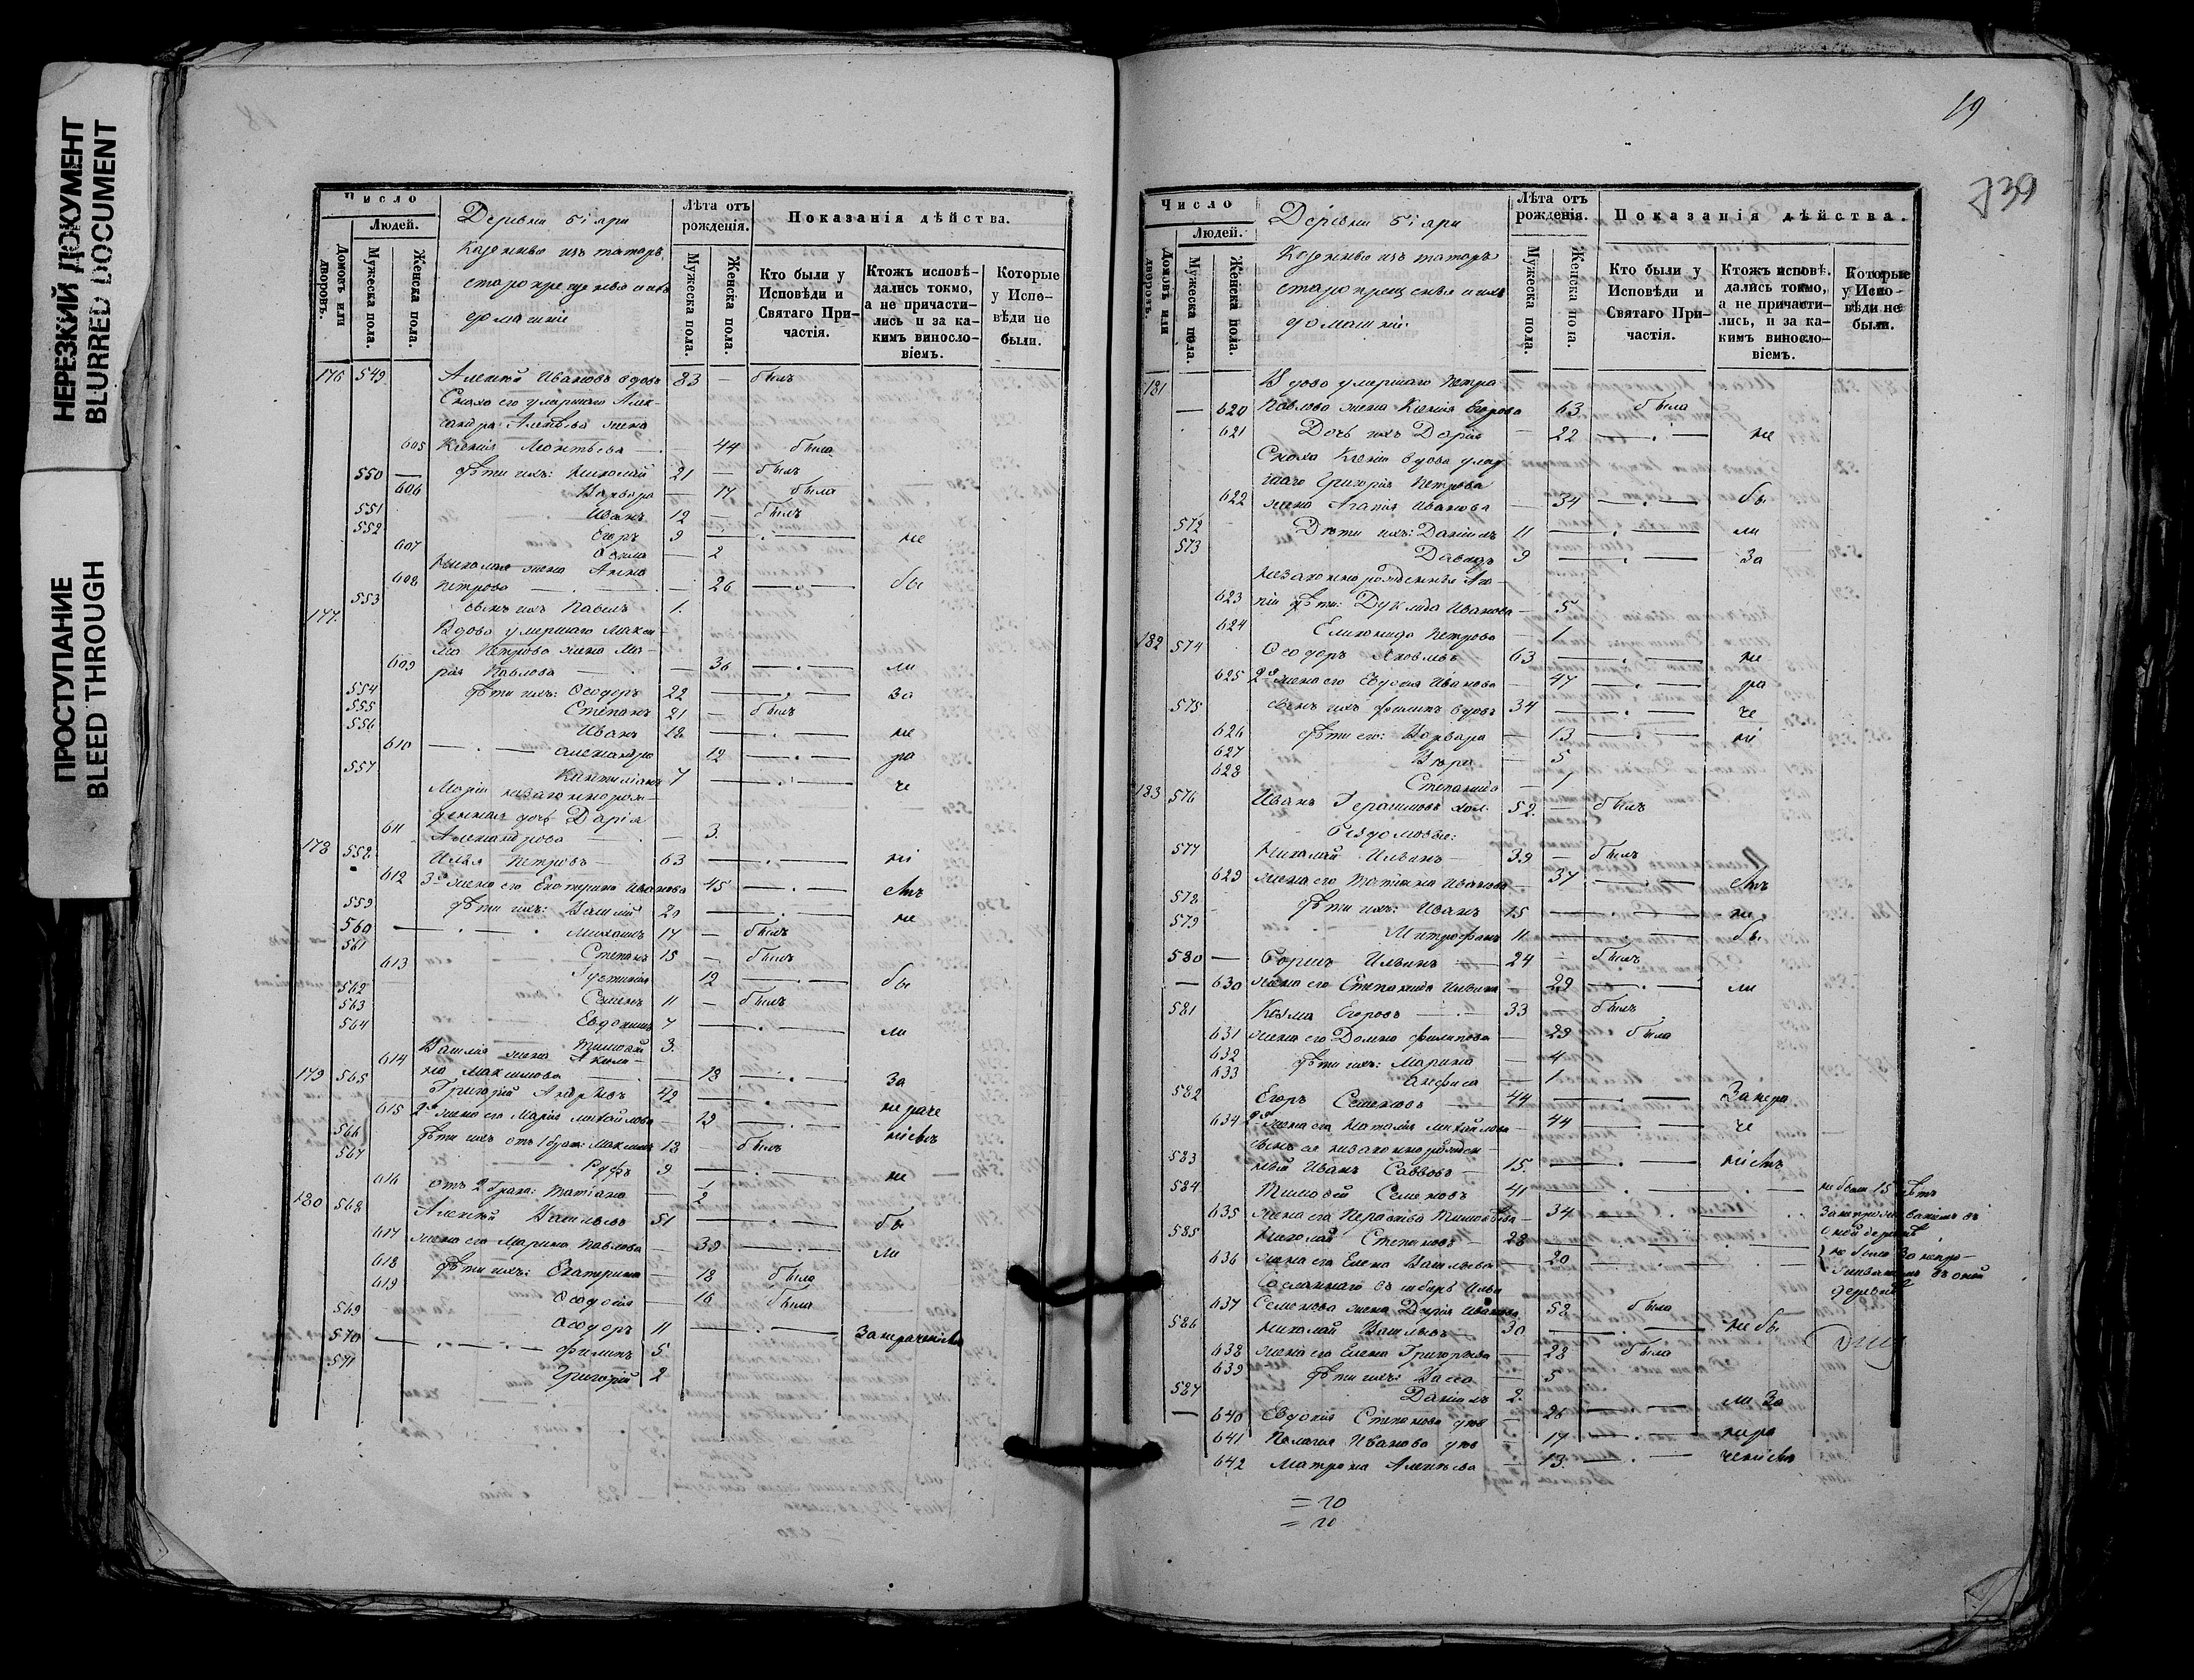 НЕРЕЗКИЙ ДОКУМЕНТ
BLURRED DOCUMENT
ПРОСТУПАНИЕ
BLEED THROUGH
Число
Людей.
Домовъ или дворовъ.
Мужеска пола.
Женска пола.
Деревни Бiяри
Казенные изъ татаръ
старокрещеныя и ихъ
домашнiе
Лѣта отъ рожденія.
Мужеска пола.
Женска пола.
Показанія дѣйства.
Кто были у Исповѣди и Святаго Причастія.
Ктожъ исповѣдались токмо, а не причастились и за какимъ винословіемъ.
Которые у Исповѣди не были.
176 549 Алексѣй Ивановъ вдовъ 83 — былъ
Сноха его умершаго Алек-
сандра Алексѣева жена
605 Ксенія — 44 была
550 — дѣти ихъ: Николай 21 — былъ
606 Варвара — 17 была
551 Иванъ 12 — былъ
552 Егоръ 9 — не
607 — 2
Николая жена Анна
608 Петрова — 26 — бы
553 сынъ ихъ Павелъ 1.
177. Вдова умершаго Макси-
ма Петрова жена Ма-
609 рія Павлова — 36 — ли
554 дѣти ихъ: Ѳеодоръ 22 — за
555 Степанъ 21 — былъ
556 Иванъ 18 — не
610 Александра 12 — ра
557 7 — че
Маріи незаконнорож-
денная дочь Дарія
611 Александрова — 3.
178 558 Илья Петровъ — 63 — ні
612 3я жена его Екатерина Иванова 45 — емъ
559 дѣти ихъ: Василій 20 — не
560 Михаилъ 17 — былъ
561 Степанъ 15 — былъ
613 Устинія 12 — бы
562 Семенъ 11 — былъ
563 Евдокимъ 7 — ли
564 Тимоѳей 3.
614 Василія жена Акули-
на Максимова — 18 — за
179 565 Григорій 42 — нераче
615 2я жена его Марія Михайлова — 29 — ніемъ
566 дѣти ихъ отъ 1 брака: Максимъ 18 былъ
567 9 — не
616 отъ 2 брака: Татіана — 2
180 568 Алексѣй Васильевъ 51 — бы
617 жена его Марина Павлова — 39 — ли
618 дѣти ихъ: Екатерина — 18 была
619 Ѳеодосія — 16 была
569 Ѳеодоръ 11 — за нераченіемъ
570 Филипъ 5
571 Григорій 2
19
739
Число
Людей.
Домовъ или дворовъ.
Мужеска пола.
Женска пола.
Деревни Бiяри
Казенные изъ татаръ
старокрещеныя и ихъ
домашнiе
Лѣта отъ рожденія.
Мужеска пола.
Женска пола.
Показанія дѣйства.
Кто были у Исповѣди и Святаго Причастія.
Ктожъ исповѣдались токмо, а не причастились, и за какимъ винословіемъ.
Которые у Исповѣди не были.
181 Вдова умершаго Петра
— 620 Павлова жена Ксенія Егорова 63 была
621 Дочь ихъ Дарія 22 — не
Сноха Ксеніи вдова умер-
шаго Григорія Петрова
622 жена Агапія Иванова — 34 — бы
572 Дѣти ихъ: Даніилъ 11 — ли
573 Давидъ 9 — за
незаконнорожденныя Ага-
623 піи дѣти: Дуклида Иванова — 5
624 Еликонида Петрова — 1
182 574 Ѳеодоръ Яковлевъ 63 — не
625 2я жена его Евдокія Иванова — 47 — ра
575 сынъ ихъ Филипъ вдовъ 34 — че
626 дѣти его: Варвара — 13 — ні
627 Вѣра — 5
628 Степанида — 1
183 576 Иванъ Герасимовъ хол. 52. — былъ
бездомовые:
577 Николай Ильинъ — 39 — былъ
629 жена его Татіана Иванова — 37 — емъ
578 дѣти ихъ: Иванъ 15 — не
579 Митрофанъ 11 — бы
580 — Борисъ Ильинъ 24 — былъ
— 630 жена его Степанида — 29 — ли
581 Козма Егоровъ — 33 — былъ
631 жена его Домна Филипова — 29 была
632 дѣти ихъ: Марина — 4
633 Анфиса — 1
582 Егоръ Семеновъ — 44 — за нера
634 2я жена его Наталія Михайлова — 44 — че
сынъ ея незаконнорожден-
583 ный Иванъ Саввовъ — 15 — ніемъ
584 Тимоѳей Семеновъ 41 — не былъ 15 лѣтъ
635 жена его Парасковія Тимоѳѣева — 34 — за непроживаніемъ въ
585 Николай Степановъ — 28 — оной деревнѣ
636 жена его Елена Васильева — 20 — не были за непро-
живаніемъ въ оной
деревнѣ
Сосланнаго въ сибирь Ильи
637 Семенова жена Дарія Иванова 58 была
586 Николай Васильевъ — 30 — не бы
638 жена его Елена Григорьева — 28 была
639 дѣти ихъ: Васса — 5
587 Даніилъ 2. ли за
— 640 Евдокія Степанова дѣв — 26 — нера
641 Пелагія Иванова дѣв — 17 — ченіемъ
642 Матрона Алексѣева — 13
= 20
= 20